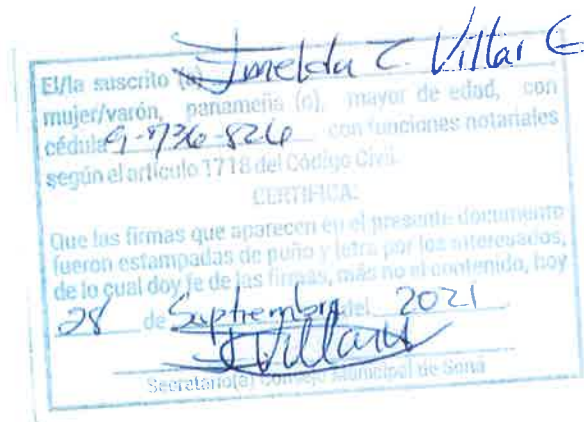 El/la suscrito (a) Imelda C. Villar C
mujer/varón, panameña (o), mayor de edad, con
cédula 9-736-826 con funciones notariales
según el artículo 1718 del Código Civil.
CERTIFICA:
Que las firmas que aparecen en el presente documento
fueron estampadas de puño y letra por los interesados,
de lo cual doy fe de las firmas, más no el contenido, hoy
28 de Septiembre del 2021
Secretario(a) Consejo Municipal de Soná